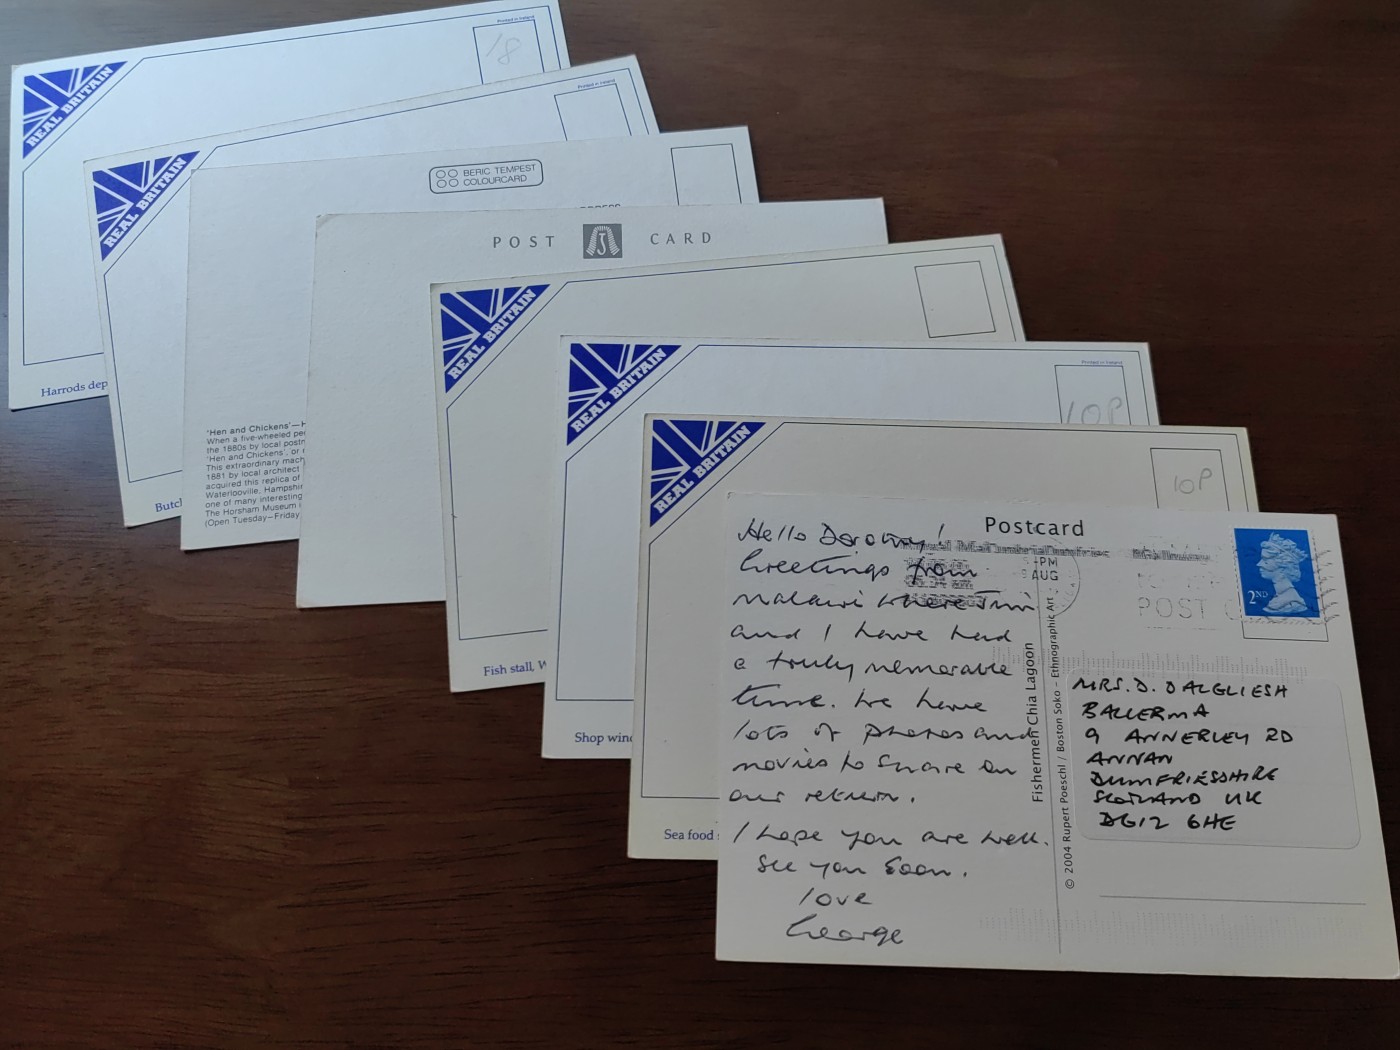 Printed in Ireland
18
REAL BRITAIN
Harrods dep
Printed in Ireland
REAL BRITAIN
Butch
BERIC TEMPEST
COLOURCARD
ADDRESS
'Hen and Chickens'—H
When a five-wheeled pe
the 1880s by local postm
'Hen and Chickens', or
This extraordinary mach
1881 by local architect
acquired this replica of
Waterlooville, Hampshir
one of many interesting
The Horsham Museum i
(Open Tuesday–Friday
POST J CARD
REAL BRITAIN
Fish stall, W
Printed in Ireland
10P
REAL BRITAIN
Shop wind
10P
REAL BRITAIN
Sea food s
Postcard
Hello Dorothy!
Greetings from
Malawi where Jimi
and I have had
a truly memorable
time. We have
lots of photos and
movies to share on
our return.
I hope you are well.
See you soon.
love
George
Fishermen Chia Lagoon
© 2004 Rupert Poeschl / Boston Soko - Ethnographic Art
-PM
AUG
POST
2ND
MRS. D. DALGLIESH
BALLERMA
9 ANNERLEY RD
ANNAN
DUMFRIESSHIRE
SCOTLAND UK
DG12 6HE